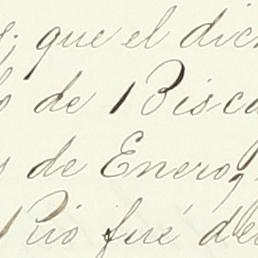 ; que el dic
o de Bisca
s de Enero,
Rio fué de